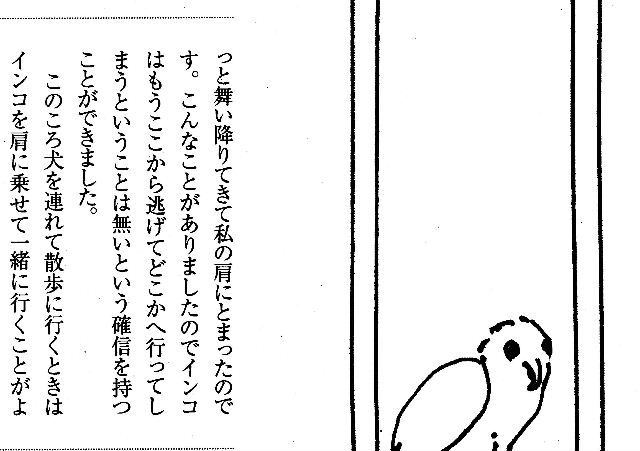 っと舞い降りてきて私の肩にとまったので
す。こんなことがありましたのでインコ
はもうここから逃げてどこかへ行ってし
まうということは無いという確信を持つ
ことができました。
このころ犬を連れて散歩に行くときは
インコを肩に乗せて一緒に行くことがよ